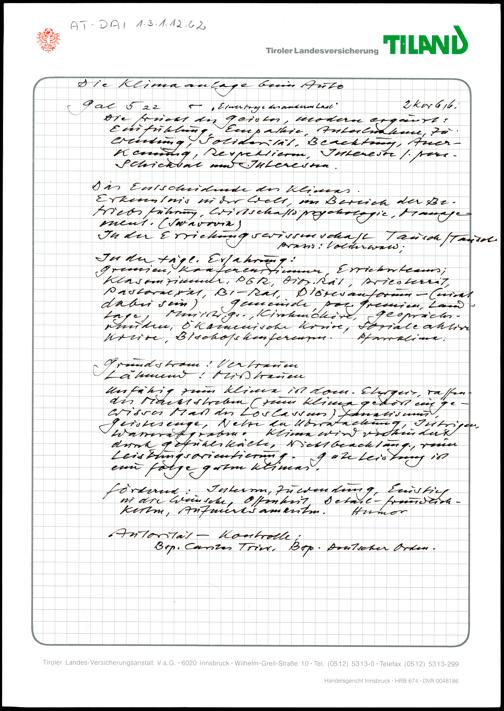 AT-DAI 1.3.1.12.62
Tiroler Landesversicherung TILAND
Die Klimaanlage beim Auto
Gal 5 22 - 2 Kor 6,6.
Die Frucht des Geistes, modern ergänzt:
Einfühlung, Empathie, Anteilnahme, Zu
wendung, Solidarität, Beachtung, Aner-
kennung, Respektieren, Interesse f. pers.
Schicksal und Interessen.
Das Entscheidende des Klimas.
Erkenntnis in der Welt, im Bereich der Be-
triebsführung, Wirtschaftspsychologie, Manage
ment. (Swarovski)
In der Erziehungswissenschaft Tausch/Tausch
In der tägl. Erfahrung:
Gremien, Konferenzzimmer,
Klassenzimmer, PGR, Priesterrat,
Pastoralrat, Diözesanforum - (nicht
dabei sein) - Gemeinde Gremien, Land
tage, Kirchenchöre, Gesprächs-
runden, Ökumenische Kreise, Sozialaktive
Kreise, Bischofskonferenzen.
Grundstrom: Vertrauen
Lähmend: Mißtrauen
Unfähig zum Klima ist dom. Ehrgeiz,
des Machtstreben (zum Klima gehört ein ge-
wisses Maß des Loslassens) Fanatismus
Geistesenge, Netze der Überwachung, Intrigen,
Klima wird verhindert
durch Gefühlskälte, Nichtbeachtung, reine
Leistungsorientierung. Gute Leistung ist
eine Folge guten Klimas.
Fördernd: Interesse, Zuwendung, Einstieg
in die Wünsche, Offenheit, Detail-Freundlich-
keiten, Aufmerksamkeiten. Humor
Autorität - Kontrolle:
Bsp. Caritas Trier, Bsp. Deutscher Orden.
Tiroler Landes-Versicherungsanstalt V.a.G. - 6020 Innsbruck - Wilhelm-Greil-Straße 10 - Tel. (0512) 5313-0 - Telefax (0512) 5313-299
Handelsgericht Innsbruck - HRB 674 - DVR 0048186